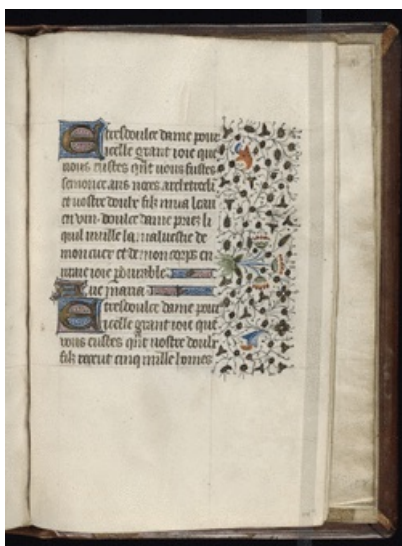 E tresdoulce dame pour
icelle grant ioie que
vous eustes qnt vous fustes
semonce aus noces archetreclī
et vostre doulx filz mua leau
en vin doulce dame priez li
quil mille la malueistie de
mon cuer et de mon corps en
vraie ioie pdurable
Aue maria
E tresdoulce dame pour
icelle grant ioie que
vous eustes qnt nostre doulx
filz reput cinq mille homes